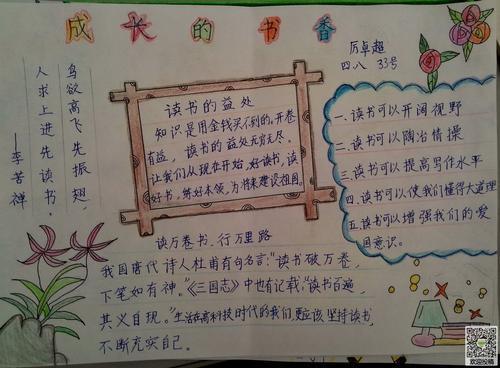 成长的书香
厉卓超
四.八 33号
鸟欲高飞先振翅,
人求上进先读书。
——李苦禅
读书的益处
知识是用金钱买不到的,开卷
有益,读书的益处无穷无尽。
让我们从现在开始,好读书,读
好书,练好本领,为将来建设祖国。
一.读书可以开阔视野
二.读书可以陶冶情操
三.读书可以提高写作水平
四.读书可以使我们懂得大道理
五.读书可以增强我们的爱
国意识。
读万卷书,行万里路
我国唐代诗人杜甫有句名言:“读书破万卷,
下笔如有神。”《三国志》中也有记载,“读书百遍,
其义自现。”生活在高科技时代的我们更应该坚持读书,
不断充实自己。
欢迎投稿